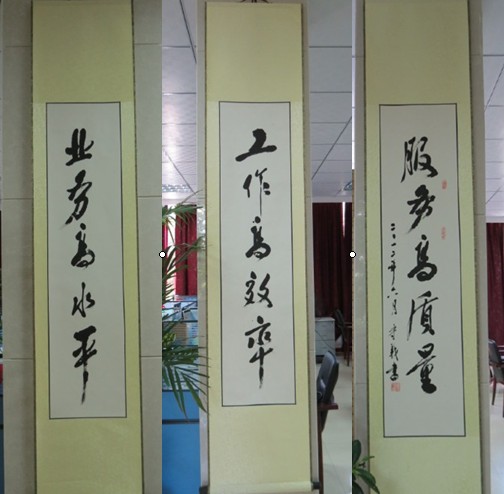 业务高水平
工作高效率
服务高质量
二〇一二年六月